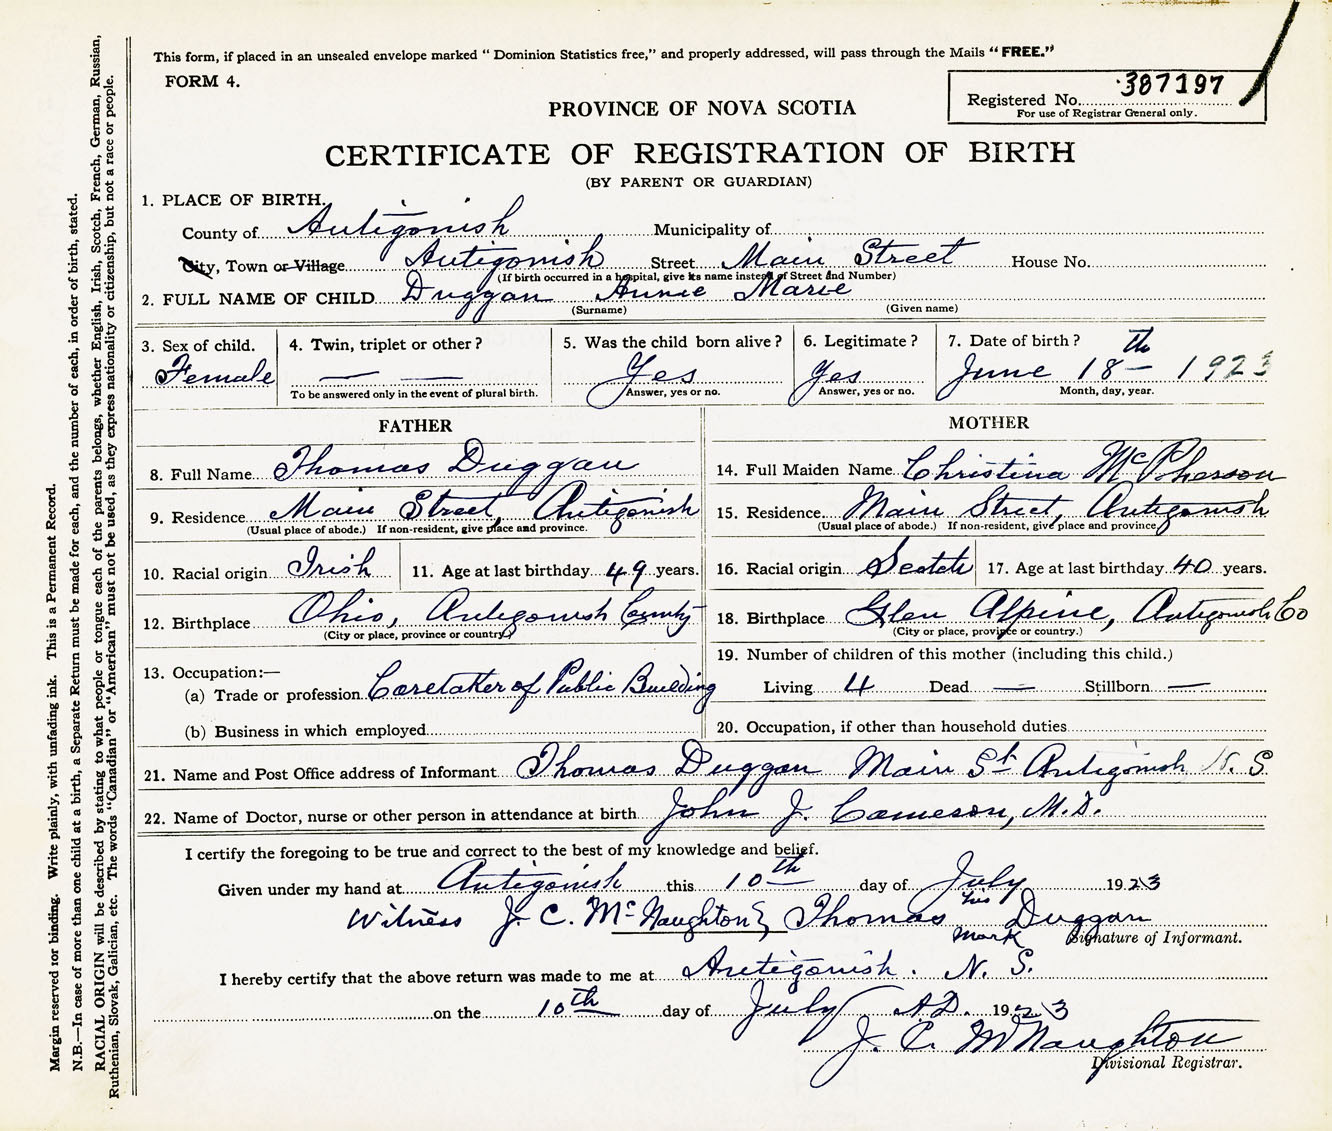 This form, if placed in an unsealed envelope marked " Dominion Statistics free," and properly addressed, will pass through the Mails "FREE."
FORM 4.
Registered No. 387197
For use of Registrar General only.
PROVINCE OF NOVA SCOTIA
CERTIFICATE OF REGISTRATION OF BIRTH
(BY PARENT OR GUARDIAN)
1. PLACE OF BIRTH.
County of Antigonish Municipality of
City, Town or Village Antigonish Street Main Street House No.
(If birth occurred in a hospital, give its name instead of Street and Number)
2. FULL NAME OF CHILD Duggan Annie Marie
(Surname) (Given name)
3. Sex of child. 4. Twin, triplet or other? 5. Was the child born alive? 6. Legitimate? 7. Date of birth?
Female — — Yes Yes June 18th 1923
To be answered only in the event of plural birth. Answer, yes or no. Answer, yes or no. Month, day, year.
FATHER
8. Full Name Thomas Duggan
9. Residence Main Street, Antigonish
(Usual place of abode.) If non-resident, give place and province.
10. Racial origin Irish 11. Age at last birthday 49 years.
12. Birthplace Ohio, Antigonish County
(City or place, province or country)
13. Occupation:—
(a) Trade or profession Caretaker of Public Building
(b) Business in which employed
MOTHER
14. Full Maiden Name Christina McPherson
15. Residence Main Street, Antigonish
(Usual place of abode.) If non-resident, give place and province.
16. Racial origin Scotch 17. Age at last birthday 40 years.
18. Birthplace Glen Alpine, Antigonish Co
(City or place, province or country.)
19. Number of children of this mother (including this child.)
Living 4 Dead — Stillborn —
20. Occupation, if other than household duties
21. Name and Post Office address of Informant Thomas Duggan Main St Antigonish N. S.
22. Name of Doctor, nurse or other person in attendance at birth John J. Cameron, M.D.
I certify the foregoing to be true and correct to the best of my knowledge and belief.
Given under my hand at Antigonish this 10th day of July 1923
his
Witness J. C. McNaughton } Thomas Duggan
mark Signature of Informant.
I hereby certify that the above return was made to me at Antigonish. N. S.
on the 10th day of July A.D. 1923
J. C. McNaughton
Divisional Registrar.
Margin reserved for binding. Write plainly, with unfading ink. This is a Permanent Record.
N.B.—In case of more than one child at a birth, a Separate Return must be made for each, and the number of each, in order of birth, stated.
RACIAL ORIGIN will be described by stating to what people or tongue each of the parents belongs, whether English, Irish, Scotch, French, German, Russian,
Ruthenian, Slovak, Galician, etc. The words "Canadian" or "American" must not be used, as they express nationality or citizenship, but not a race or people.